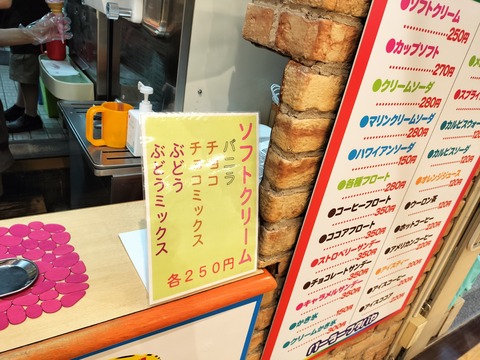 ソフトクリーム
バニラ
チョコ
チョコミックス
ぶどう
ぶどうミックス
各250円
●ソフトクリーム
250円
●カップソフト
270円
●クリームソーダ
280円
●マリンクリームソーダ
280円
●ハワイアンソーダ
150円
●各種フロート
280円
●コーヒーフロート
350円
●ココアフロート
350円
●ストロベリーサンデー
350円
●チョコレートサンデー
350円
●キャラメルサンデー
350円
●かき氷
●クリームかき氷
300円
●カルピスソーダ
●オレンジジュース
●ウーロン茶
●ホットコーヒー
●アメリカンコーヒー
●アイスティー
●アイスコーヒー
●アイスココア